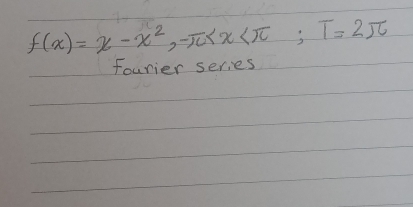 f(x) = x - x², -π<x<π ; T = 2π
Fourier series